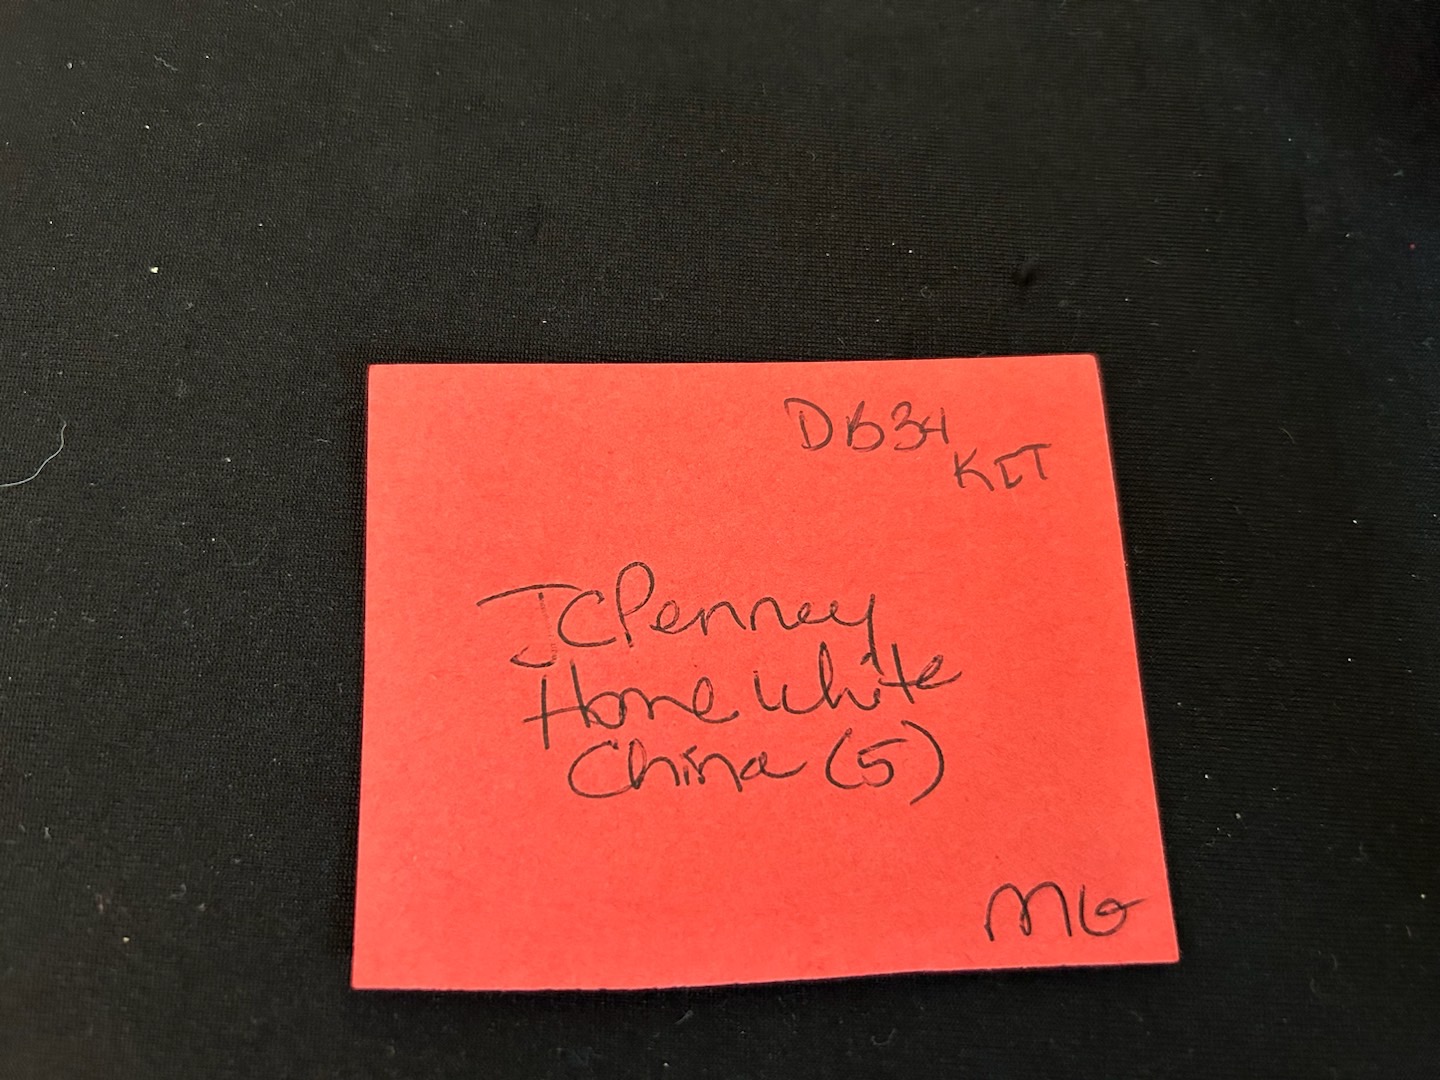 DB34
KIT
JCPenney
Home White
China (5)
MG